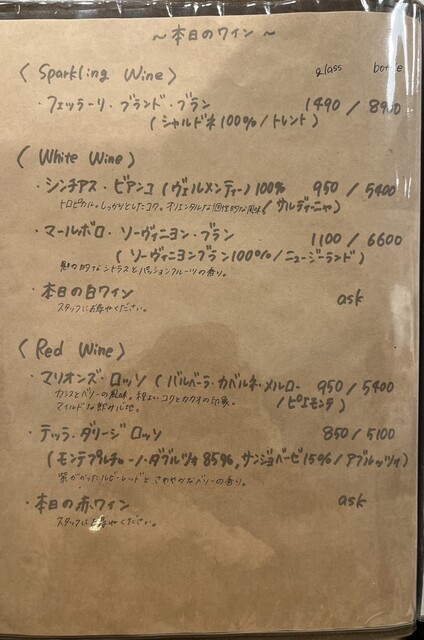 ～本日のワイン～
〈Sparkling Wine〉 glass bottle
・フェッラーリ・ブランド・ブラン 1490 / 8900
(シャルドネ100%/トレント)
〈White Wine〉
・シンチアス・ビアンコ(ヴェルメンティーノ)100% 950 / 5400
トロピカル。しっかりとしたコク。オリエンタルな個性的な風味 / サルディーニャ)
・マールボロ・ソーヴィニヨン・ブラン 1100 / 6600
(ソーヴィニヨンブラン100%/ニュージーランド)
魅力的なシトラスとパッションフルーツの香り。
・本日の白ワイン ask
スタッフにお尋ねください。
〈Red Wine〉
・マリオンズ・ロッソ(バルベーラ・カベルネ・メルロー 950 / 5400
カシスとベリーの風味。程よいコクとカカオの印象。 /ピエモンテ)
マイルドな飲み心地。
・テッラ・ダリージ ロッソ 850 / 5100
(モンテプルチャーノ・ダブルッツォ85%,サンジョベーゼ15%/アブルッツォ)
紫がかったルビーレッドと さわやかなベリーの香り。
・本日の赤ワイン ask
スタッフにお尋ねください。